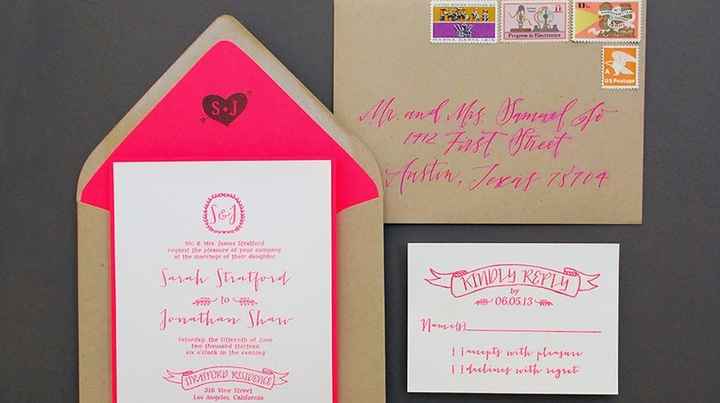 S • J
S&J
Mr. & Mrs. James Stratford
request the pleasure of your company
at the marriage of their daughter
Sarah Stratford
to
Jonathan Shaw
saturday the fifteenth of june
two thousand thirteen
six o'clock in the evening
STRATFORD RESIDENCE
318 View Street
Los Angeles, California
Progress in Electronics
11¢
A
US Postage
Mr. and Mrs. Samuel
1912 First Street
Austin, Texas 78704
KINDLY REPLY
by
06.05.13
Name(s)
[ ] accepts with pleasure
[ ] declines with regret